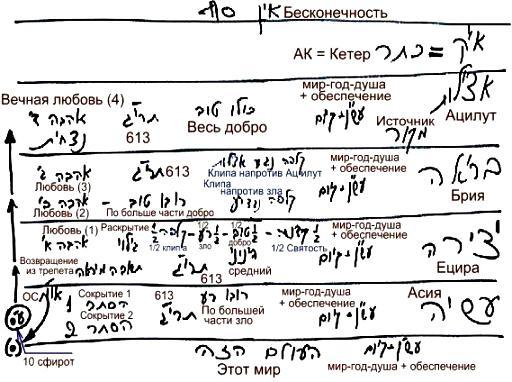 אין סוף Бесконечность
АК = Кетер כתר = א"ק
Вечная любовь (4) мир-год-душа + обеспечение אצילות
אהבה ד' נצחית תרי"ג 613 כולו טוב Весь добро Источник מקור Ацилут
אהבה ג' תרי"ג 613 Клипа напротив Ацилут мир-год-душа + обеспечение בריאה
Любовь (3) Клипа напротив зла
אהבה ב' רובו טוב Брия
Любовь (2) По больше части добро
Любовь (1) Раскрытие 1/2 1/2 мир-год-душа + обеспечение
אהבה א' גילוי 1/2 клипа зло добро 1/2 Святость יצירה
Возвращение из трепета תשובה מיראה תרי"ג 613 בינוני средний Ецира
ОС Сокрытие 1 613 רובו רע мир-год-душа + обеспечение Асия
1 הסתר תרי"ג По большей части зло עשיה
Сокрытие 2
2 הסתר
10 сфирот העולם הזה
Этот мир мир-год-душа + обеспечение